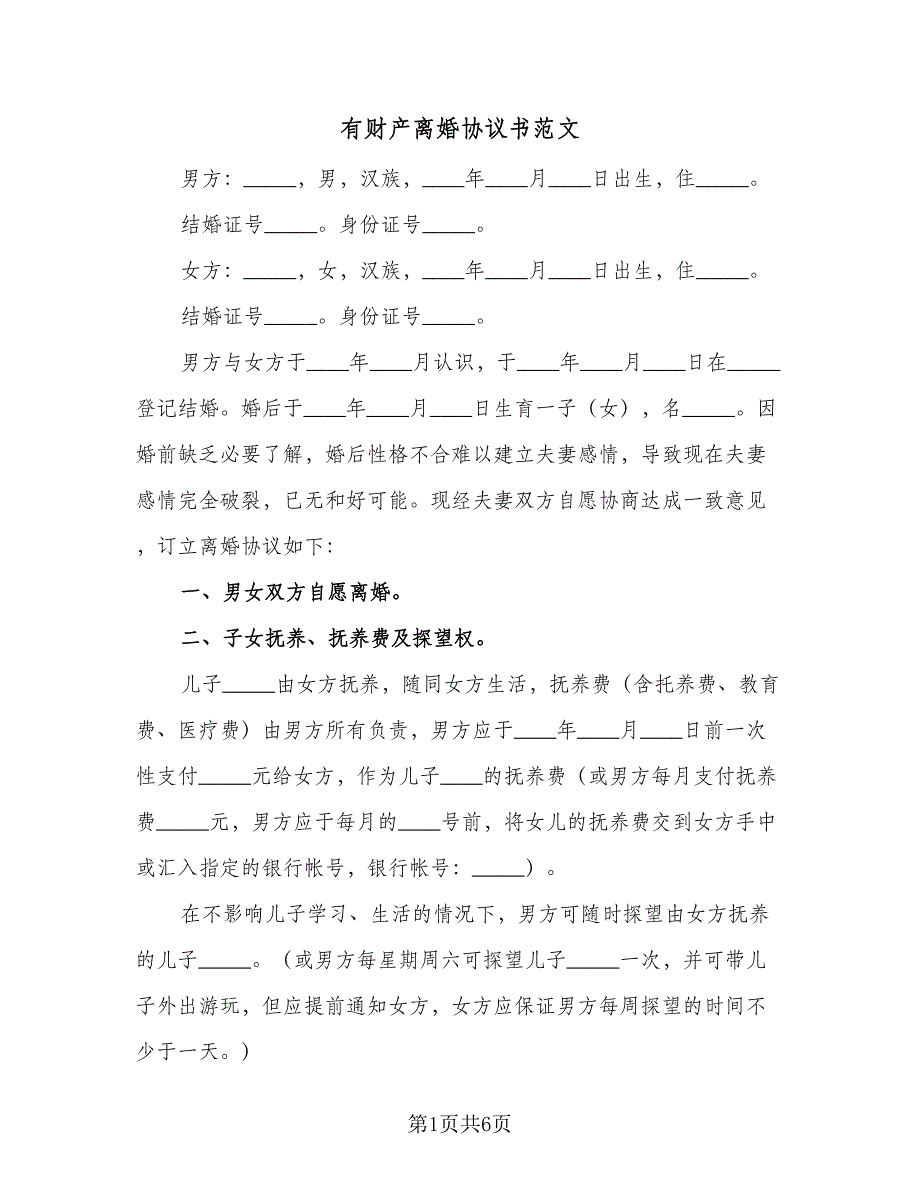 有财产离婚协议书范文
男方：_____，男，汉族，____年____月____日出生，住_____。
结婚证号_____。身份证号_____。
女方：_____，女，汉族，____年____月____日出生，住_____。
结婚证号_____。身份证号_____。
男方与女方于____年____月认识，于____年____月____日在_____
登记结婚。婚后于____年____月____日生育一子（女），名_____。因
婚前缺乏必要了解，婚后性格不合难以建立夫妻感情，导致现在夫妻
感情完全破裂，已无和好可能。现经夫妻双方自愿协商达成一致意见
，订立离婚协议如下：
一、男女双方自愿离婚。
二、子女抚养、抚养费及探望权。
儿子_____由女方抚养，随同女方生活，抚养费（含托养费、教育
费、医疗费）由男方所有负责，男方应于____年____月____日前一次
性支付_____元给女方，作为儿子____的抚养费（或男方每月支付抚养
费_____元，男方应于每月的____号前，将女儿的抚养费交到女方手中
或汇入指定的银行帐号，银行帐号：_____）。
在不影响儿子学习、生活的情况下，男方可随时探望由女方抚养
的儿子_____。（或男方每星期周六可探望儿子_____一次，并可带儿
子外出游玩，但应提前通知女方，女方应保证男方每周探望的时间不
少于一天。）
第1页共6页